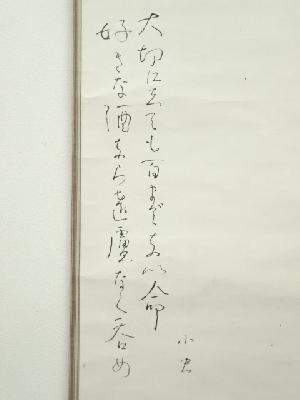 大切に志ても百までない命
好きな酒なら遠慮なく呑め